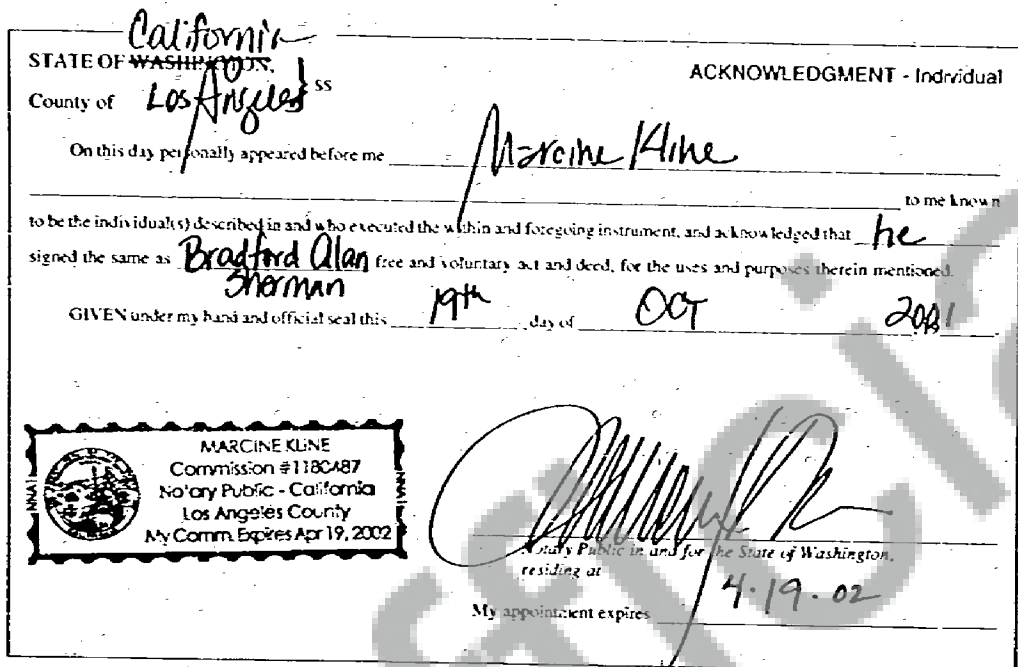 California
STATE OF WASHINGTON,
ACKNOWLEDGMENT - Individual
County of Los Angeles } ss
On this day personally appeared before me Marcine Kline
to me known
to be the individual(s) described in and who executed the within and foregoing instrument, and acknowledged that he
signed the same as Bradford Alan free and voluntary act and deed, for the uses and purposes therein mentioned.
Sherman
GIVEN under my hand and official seal this 19th day of OCT 2001
MARCINE KLINE
Commission #1180487
Notary Public - California
Los Angeles County
My Comm. Expires Apr 19, 2002
Notary Public in and for the State of Washington,
residing at
My appointment expires 4.19.02